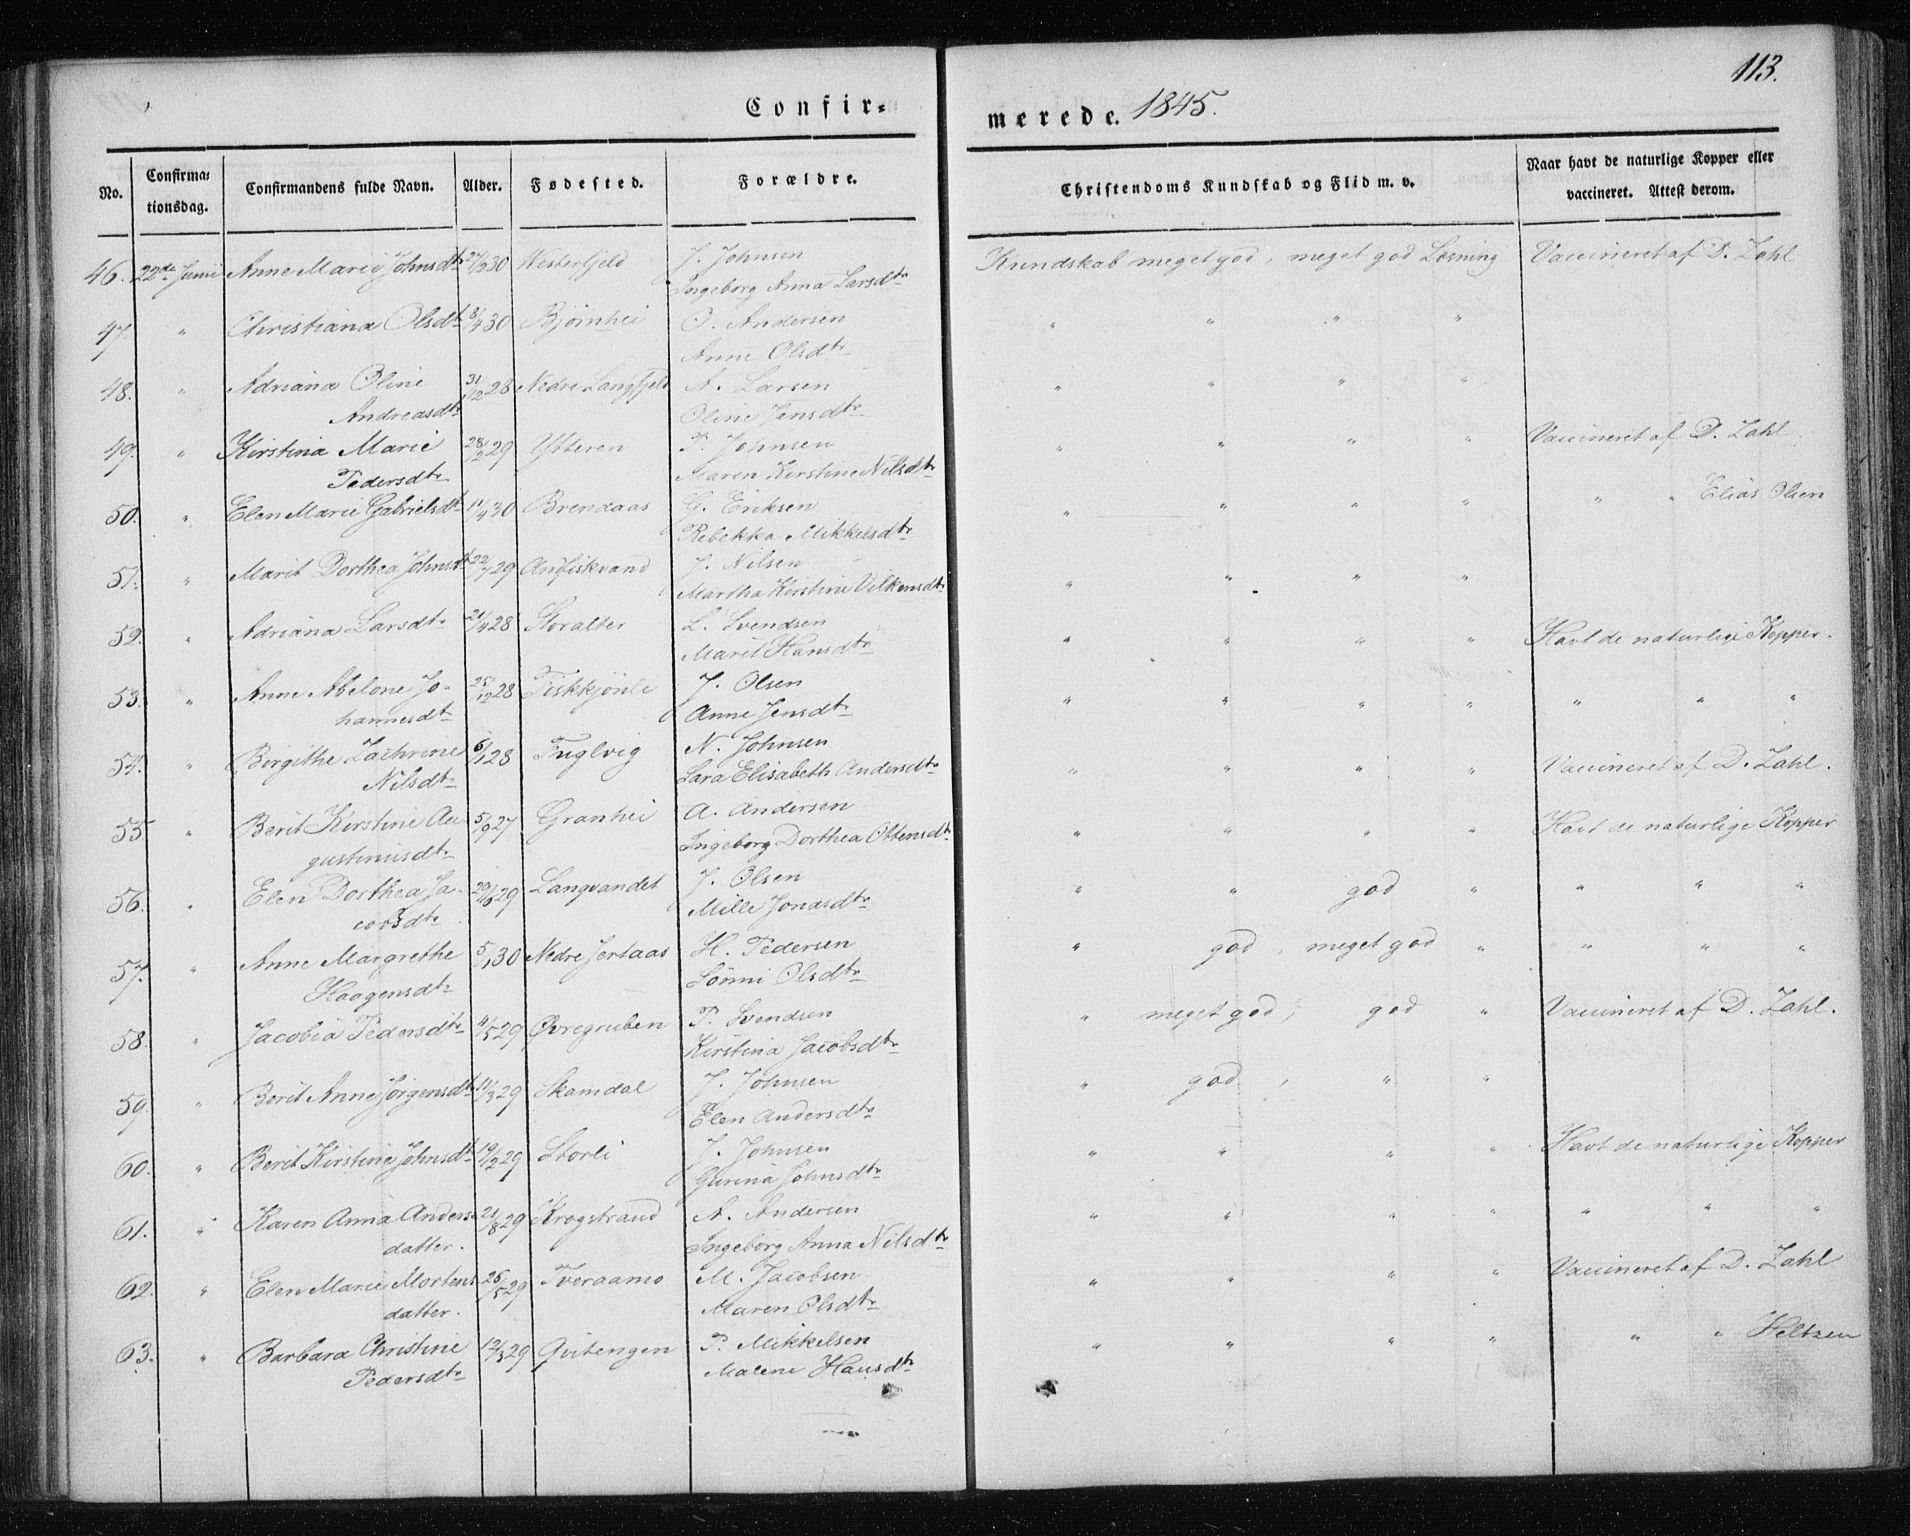 113.
Confir-
merede. 1845.
No. Confirma-tionsdag. Confirmandens fulde Navn. Alder. Fødested. Forældre. Christendoms Kundskab og Flid m. v. Naar havt de naturlige Kopper eller vaccineret. Attest derom.
46. 22de Junii Anne Marie Johnsdtr 27/2 30 Westerfjeld J. Johnsen Kundskab meget god, meget god Læsning Vaccineret af D. Zahl
Ingeborg Anna Larsdtr
47. " Christiana Olsdtr 8/4 30 Bjørnhei O. Andersen " " " "
Anne Olsdtr
48. " Adriana Oline 31/12 28 Nedre Langfjeld A. Larsen " " " "
Andreasdtr Oline Jensdtr
49. " Kirstina Marie 28/2 29 Ytteren P. Johnsen " " " " Vaccineret af D. Zahl
Pedersdtr Maren Kirstine Nilsdtr
50. " Elen Marie Gabrielsdtr 11/4 30 Brendaas G. Eriksen " " " " " " Elias Olsen
Rebekka Mikkelsdtr
51. " Marit Dorthea Johnsdtr 22/7 29 Anfiskvand J. Nilsen " " " "
Martha Kirstine Vilkensdtr
52. " Adriana Larsdtr 21/4 28 Storalter L. Svendsen " " " " Havt de naturlige Kopper.
Marit Hansdtr
53. " Anne Abelone Jo- 25/12 28 Fiskkjønli J. Olsen " " " " " " "
hannesdtr Anne Jensdtr
54. " Birgithe Zachrine 6/1 28 Fuglvig N. Johnsen " " " " Vaccineret af D. Zahl.
Nilsdtr Sara Elisabeth Andersdtr
55 " Berit Kirstine Au- 5/9 27 Granhei A. Andersen " " " " Havt de naturlige Kopper
gustinusdtr Ingeborg Dorthea Ottensdtr
56. " Elen Dorthea Ja- 29/6 29 Langvandet J. Olsen " " god " " " "
cobsdtr Mille Jonasdtr
57. " Anne Margrethe 5/1 30 Nedre Jertaas H. Pedersen " god, meget god " " " "
Haagensdtr Sønni Olsdtr
58. " Jacobia Pedersdtr 4/5 29 Øvregruben P. Svendsen " meget god, god " Vaccineret af D. Zahl.
Kirstina Jacobsdtr
59. " Berit Anne Jørgensdtr 11/3 29 Skamdal J. Johnsen " god, " "
Elen Andersdtr
60. " Berit Kirstine Johnsdtr 19/2 29 Storli J. Johnsen " " " " Havt de naturlige Kopper
Gurina Johnsdtr
61. " Karen Anna Anders- 21/8 29 Krogstrand A. Andersen " " " " " " "
datter. Ingeborg Anna Nilsdtr
62. " Elen Marie Mortens- 25/5 29 Tveraamo M. Jacobsen " " " " Vaccineret af D. Zahl
datter. Maren Olsdtr
63. " Barbara Christine 12/3 29 Qvitengen P. Mikkelsen " " " " " " Heltzen
Pedersdtr Malene Hansdtr